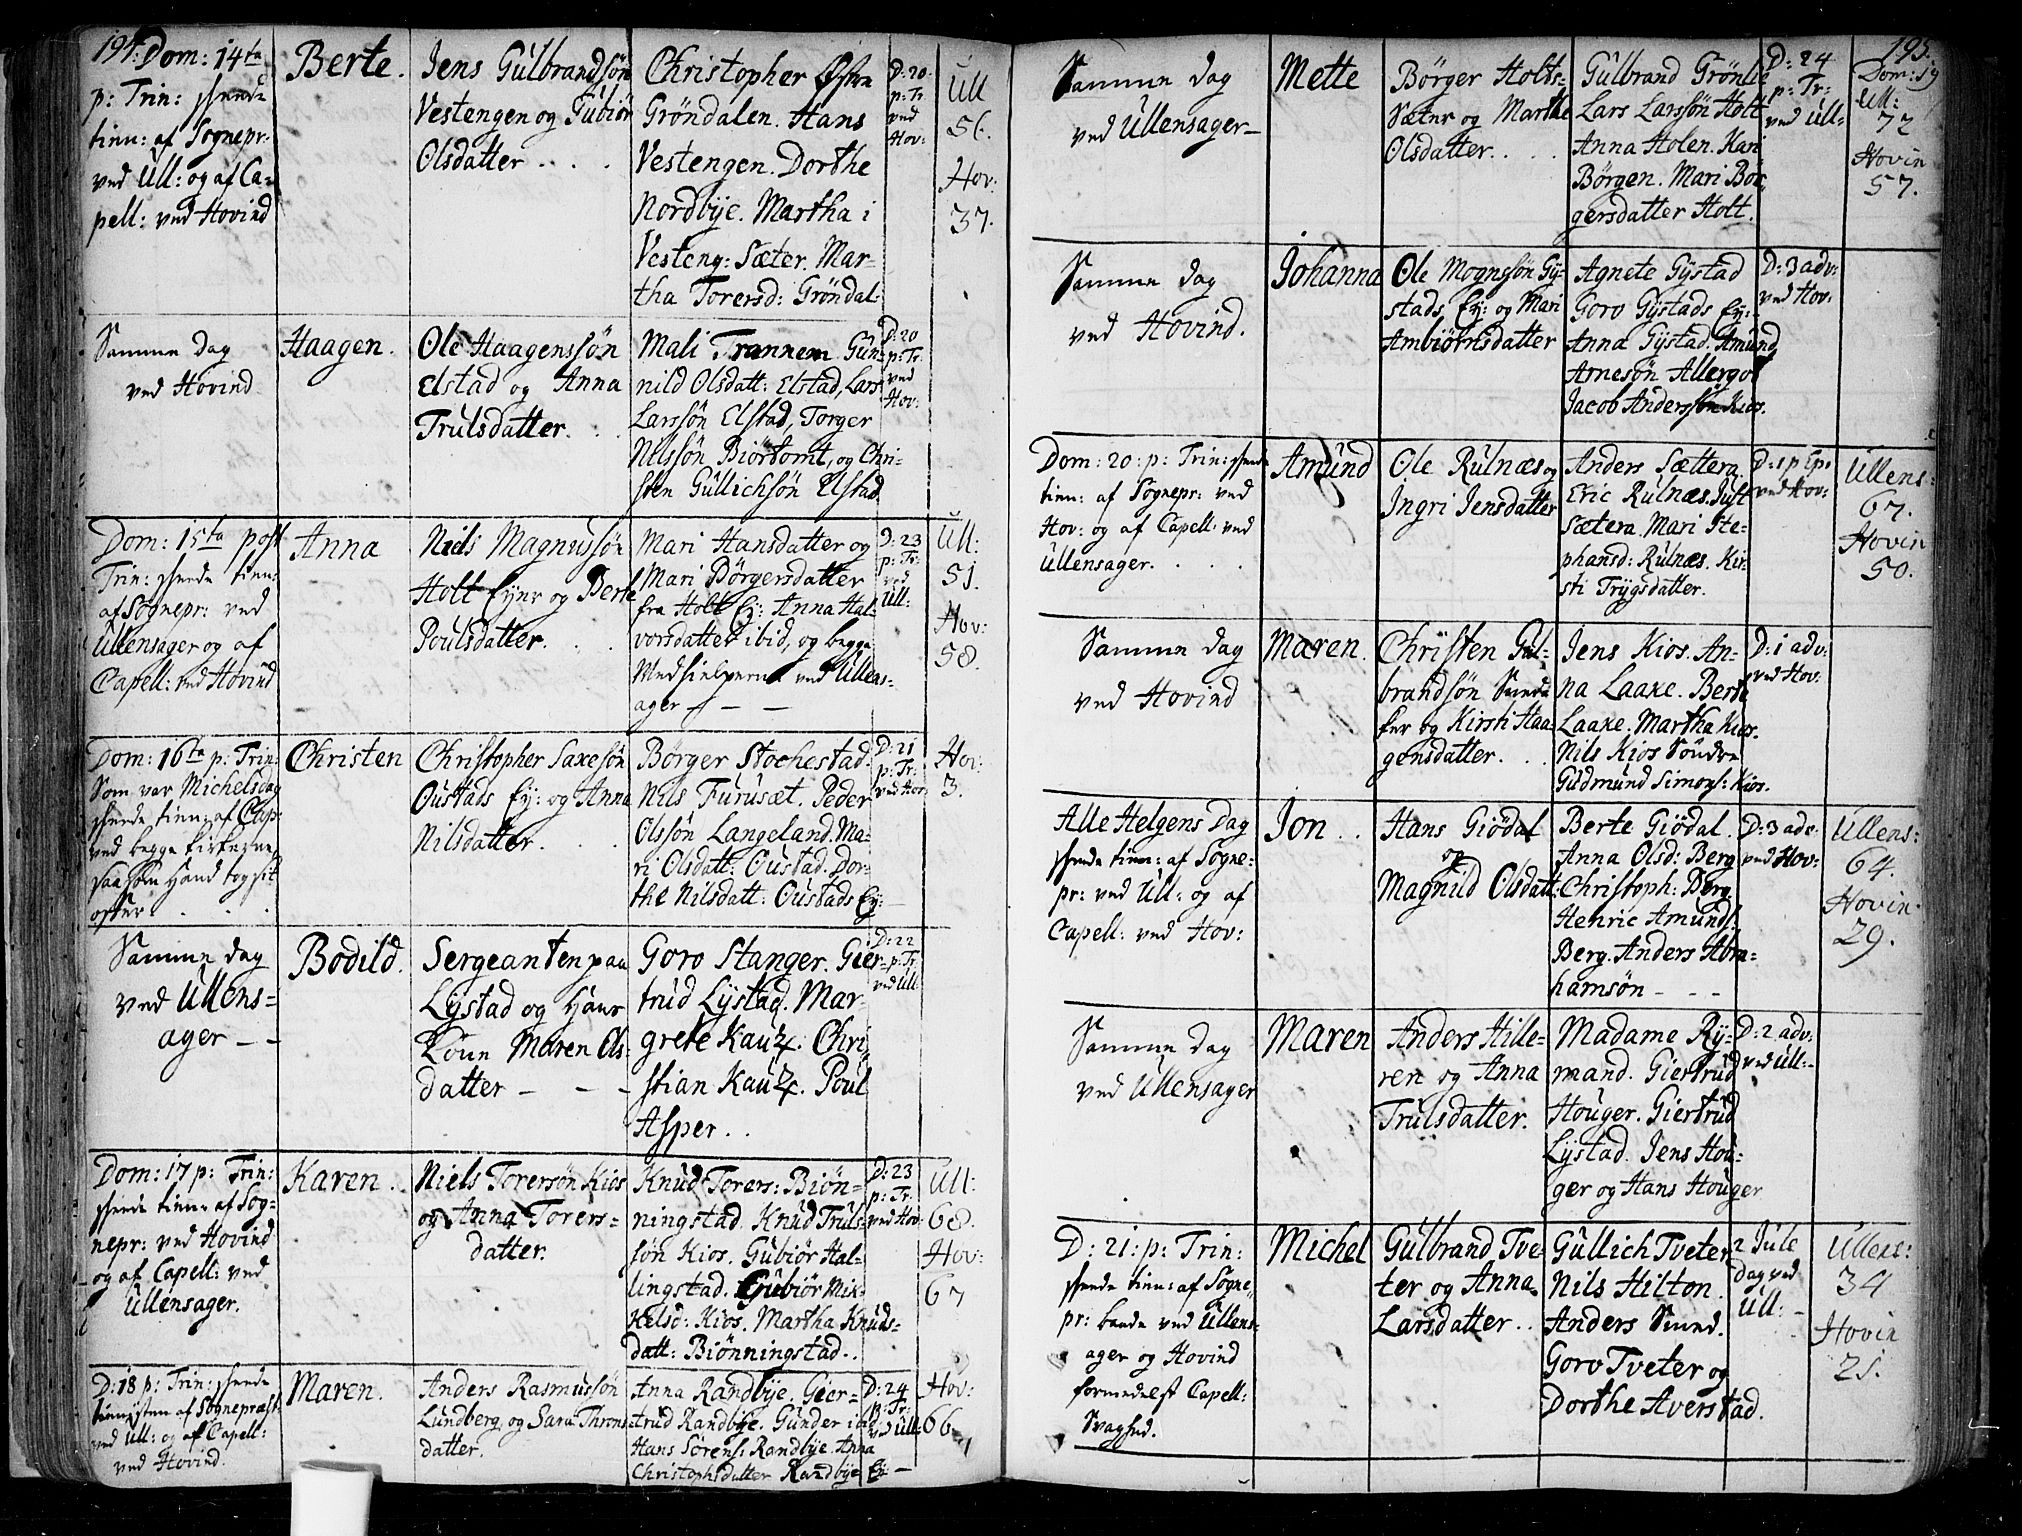 194.
Dom: 14ta
p: Trin: skeede
tien: af Sognepr:
ved Ull: og af Ca-
pell: ved Hovind
Berte.
Jens Gulbrandsøn
Vestengen og Gubiør
Olsdatter . . . .
Christopher Østre
Grøndalen. Hans
Vestengen. Dorthe
Nordbÿe. Martha i
Vesteng: Sæter. Mar-
tha Torersd: Grøndal:
D: 20
p: Tr
ved
Hov:
Ull
56.
Hov:
37.
Samme dag
ved Hovind
Haagen.
Ole Haagenssøn
Elstad og Anna
Trulsdatter. . .
Mali Trannem Gun-
nild Olsdatt: Elstad, Lars
Larssøn Elstad, Torger
Nilssøn Biørtomt, og Chri-
sten Gullichsøn Elstad
D: 20
p: Tr:
ved
Hov:
Dom: 15ta post
Trin: skeede tien:
af Sognepr: ved
Ullensager og af
Capell: ved Hovind
Anna
Niels Magnussøn
Holt Eÿer og Berte
Poulsdatter. . .
Mari Hansdatter og
Mari Børgersdatter
fra Holt Eÿ: Anna Hal-
vorsdatter ibid, og begge
Medhielperne ved Ullens-
ager - - -
D: 23
p: Tr:
ved
Ull:
Ull:
51.
Hov:
58.
Dom: 16ta p: Trin:
som var Michelsdag
skeede tien: af Cap:
ved begge kirkerne,
saasom Hand tog sit
offer . . .
Christen
Christopher Saxesøn
Oustads Eÿ: og Anna
Nilsdatter. . .
Børger Stochestad.
Nils Furusæt. Peder
Olssøn Langeland. Ma-
ri Olsdatt: Oustad. Dor-
the Nilsdatt: Oustads Eÿ:
D: 21
p: Tr:
ved Hov:
Hov:
3.
Samme dag
ved Ullens-
ager - -
Bodild.
Sergeanten paa
Lÿstad og Hans
Kone Maren Ols-
datter - - -
Goro Stanger. Gier-
trud Lÿstad. Mar-
grete Kautz. Chri-
stian Kautz. Poul
Asper. .
D: 22
p: Tr
ved Ull
Dom: 17 p: Trin:
skeede tien: af Sog-
nepr: ved Hovind
og af Capell: ved
Ullensager.
Karen.
Niels Torersøn Kios
og Anna Torers-
datter.
Knud Torers: Biøn-
ningstad. Knud Truls-
søn Kios. Gubiør Hal-
lingstad. Gubiør Mik-
kelsd: Kios. Martha Knuds-
datt: Biønningstad. .
D: 23
p: Tr.
ved Hov:
Ull:
68.
Hov:
67
D: 18 p: Trin: skeede
tienisten af Sognepræst:
ved Ull: og af Capell:
ved Hovind.
Maren.
Anders Rasmussøn
Lundberg og Sara Throns-
datter.
Anna Randbÿe. Gier-
trud Randbÿe. Gunder ibid
Hans Sørens: Randbÿe Anna
Christophsdatter Randbÿe Eÿ -
D: 24
p: Tr:
ved Ull:
Hov:
66.
195.
Samme dag
ved Ullensager -
Mette
Børger Holts-
Sæter og Marthe
Olsdatter. . . .
Gulbrand Grønlie
Lars Larssøn Holt
Anna Holen. Kari
Børgen. Mari Bør-
gersdatter Holt.
D: 24
p: Tr:
ved Ull:
Dom: 19
Ull:
72
Hovin
57.
Samme dag
ved Hovind.
Johanna
Ole Mognssøn Gÿ-
stads Eÿ: og Mari
Ambiørnsdatter
Agnete Gÿstad
Goro Gÿstads Eÿ:
Anna Gÿstad. Amund
Arnesøn Allergot
Jacob Anderssøn Kios.
D: 3 adv:
ved Hov:
Dom: 20: p: Trin: skeede
tien: af Sognepr: ved
Hov: og af Capell: ved
Ullensager. . . .
Amund
Ole Rulnæs og
Ingri Jensdatter
Anders Sættera
Eric Rulnæs. Just
Sætera. Mari Ste-
phansd: Rulnæs. Kir-
sti Trÿgsdatter.
D: 1 p Ep:
ved Hov:
Ullens:
67.
Hovin
50.
Samme dag
ved Hovind
Maren.
Christen Gul-
brandsøn Smeda-
ker og Kirsti Haa-
gensdatter. . .
Jens Kios. An-
na Laaxe. Berte
Laaxe. Martha Kios.
Nils Kios Søndre
Gudmund Simons: Kios.
D: 1 adv:
ved Hov:
Alle Helgens Dag
skeede tien: af Sogne-
pr: ved Ull: og af
Capell: ved Hov:
Jon . .
Hans Giødal
og
Magnild Olsdatt:
Berte Giødal.
Anna Olsd: Berg
Christoph: Berg.
Henric Amunds:
Berg. Anders Abra-
hamsøn - - -
D: 3 adv:
ved Hov:
Ullens:
64.
Hovin
29.
Samme dag
ved Ullensager
Maren
Anders Hille-
ren og Anna
Trulsdatter.
Madame Rÿ-
mand. Giertrud
Houger. Giertrud
Lÿstad. Jens Hou-
ger og Hans Houger
D: 2 adv:
ved Ull:
D: 21: p: Trin:
skeede tien: af Sogne-
pr: baade ved Ullens-
ager og Hovind
formedelst Capell:
Svaghed.
Michel
Gulbrand Tve-
ter og Anna
Larsdatter. .
Gullich Tveter
Nils Hilton.
Anders Smed.
Goro Tveter og
Dorthe Averstad.
2 Jule
Dag ved
Ull: -
Ullens:
34
Hovin
21.